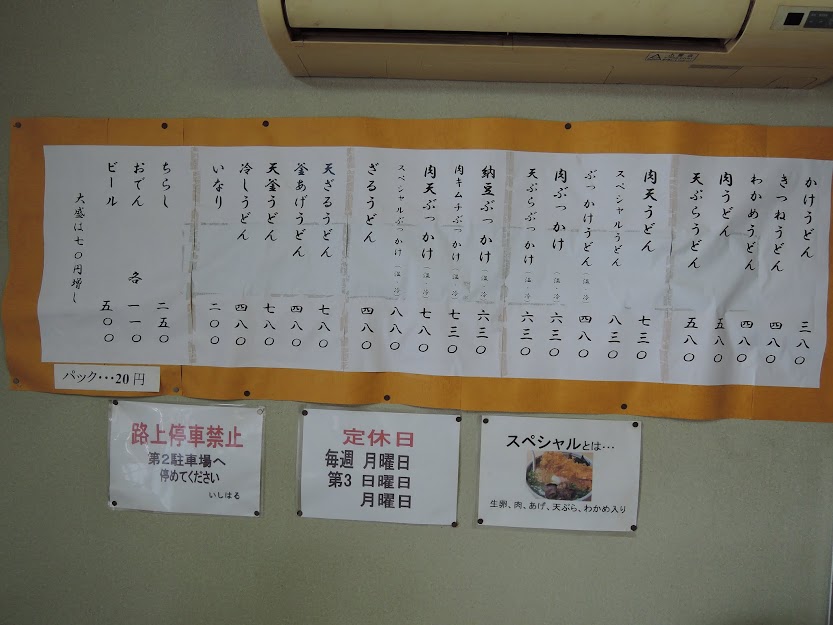 かけうどん 三八〇
きつねうどん 四八〇
わかめうどん 四八〇
肉うどん 五八〇
天ぷらうどん 五八〇
肉天うどん 七三〇
スペシャルうどん 八三〇
ぶっかけうどん(温・冷) 四八〇
肉ぶっかけ(温・冷) 六三〇
天ぷらぶっかけ(温・冷) 六三〇
納豆ぶっかけ(温・冷) 六三〇
肉キムチぶっかけ(温・冷) 七三〇
肉天ぶっかけ(温・冷) 七八〇
スペシャルぶっかけ(温・冷) 八八〇
ざるうどん 四八〇
天ざるうどん 七八〇
釜あげうどん 四八〇
天釜うどん 七八〇
冷しうどん 四八〇
いなり 二〇〇
ちらし 二五〇
おでん 各 一一〇
ビール 五〇〇
大盛は七〇円増し
パック・・・20円
路上停車禁止
第2駐車場へ
停めてください
いしはる
定休日
毎週 月曜日
第3 日曜日
月曜日
スペシャルとは…
生卵、肉、あげ、天ぷら、わかめ入り